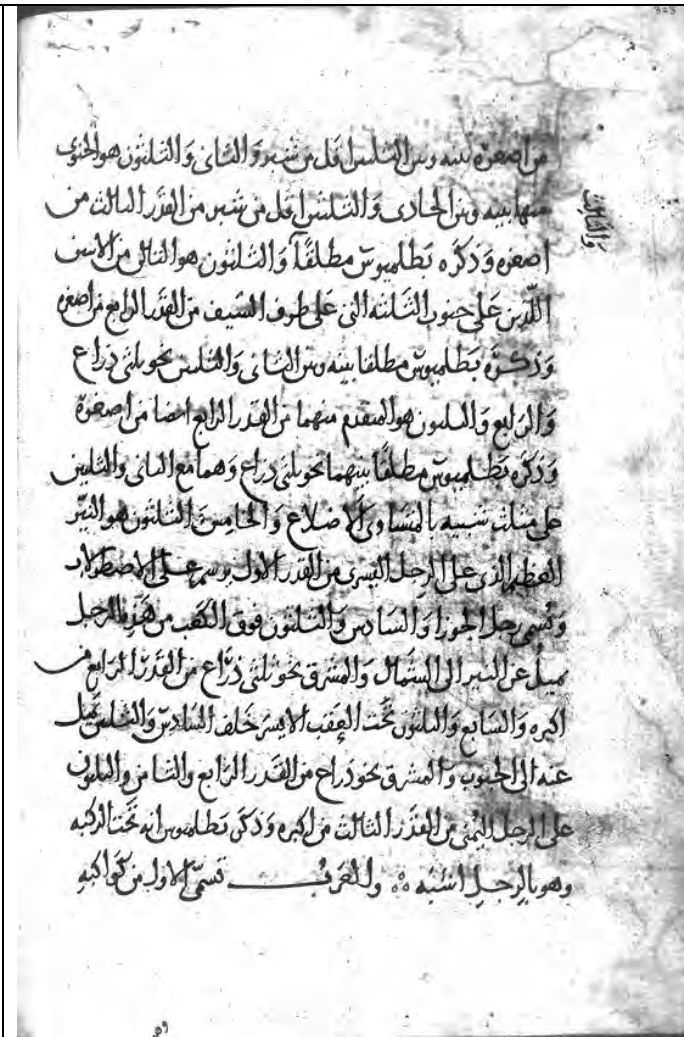 من اصغره بينه وبين الثلثين اقل من شبر والثانى والثلثون هو الجنوبى
منها بينه وبين الحادى والثلثين اقل من شبر من القدر الثالث من
اصغره وذكره بطلميوس مطلقًا والثلثون هو التالى من الاثنين
اللذين على جنوب الثلثة التى على طرف السيف من القدر الرابع من اصغره
وذكره بطلميوس مطلقا بينه وبين الثانى والثلثين نحو ثلثى ذراع
والرابع والثلثون هو المتقدم منهما من القدر الرابع ايضا من اصغره
وذكره بطلميوس مطلقًا بينهما نحو ثلثى ذراع وهما مع الثانى والثلثين
على مثلث شبيه بالمتساوى الاضلاع والخامس والثلثون هو النيّر
العظيم الذى على الرجل اليسرى من القدر الاول يوسم على الاصطرلاب
وتسمى رجل الجوزا والسادس والثلثون فوق الكعب من هذه الرجل
تميل عن النير الى الشمال والمشرق نحو ثلثى ذراع من القدر الرابع من
اكبره والسابع والثلثون تحت العقب الايسر خلف السادس والثلثين تميل
عنه الى الجنوب والمشرق نحو ذراع من القدر الرابع والثامن والثلثون
على الرجل اليمنى من القدر الثالث من اكبره وذكر بطلميوس انه تحت الركبه
وهو بالرجل اشبه ٥٥ والعرب تسمّى الاول من كواكبه
والثالث
وهى
323